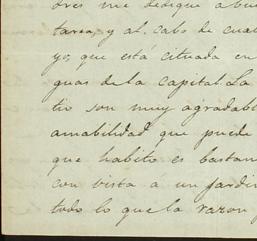 dres me dediqué a bus
tarea, y al cabo de cua
yo, que está cituada en
guas de la capital. La
tio son muy agradabl
amabilidad que puede
que habito es bastan
con vista á un jardin
todo lo que la razon p